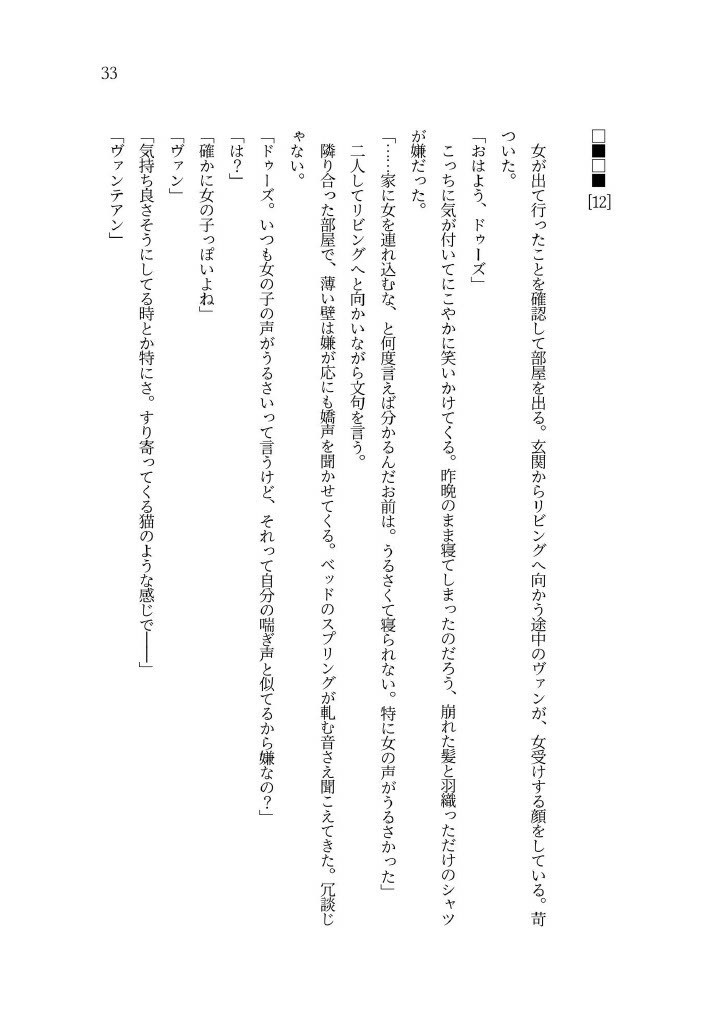 33
□■□■ [12]
女が出て行ったことを確認して部屋を出る。玄関からリビングへ向かう途中のヴァンが、女受けする顔をしている。苛
ついた。
「おはよう、ドゥーズ」
こっちに気が付いてにこやかに笑いかけてくる。昨晩のまま寝てしまったのだろう、崩れた髪と羽織っただけのシャツ
が嫌だった。
「……家に女を連れ込むな、と何度言えば分かるんだお前は。うるさくて寝られない。特に女の声がうるさかった」
二人してリビングへと向かいながら文句を言う。
隣り合った部屋で、薄い壁は嫌が応にも嬌声を聞かせてくる。ベッドのスプリングが軋む音さえ聞こえてきた。冗談じ
ゃない。
「ドゥーズ。いつも女の子の声がうるさいって言うけど、それって自分の喘ぎ声と似てるから嫌なの？」
「は？」
「確かに女の子っぽいよね」
「ヴァン」
「気持ち良さそうにしてる時とか特にさ。すり寄ってくる猫のような感じで――」
「ヴァンテアン」